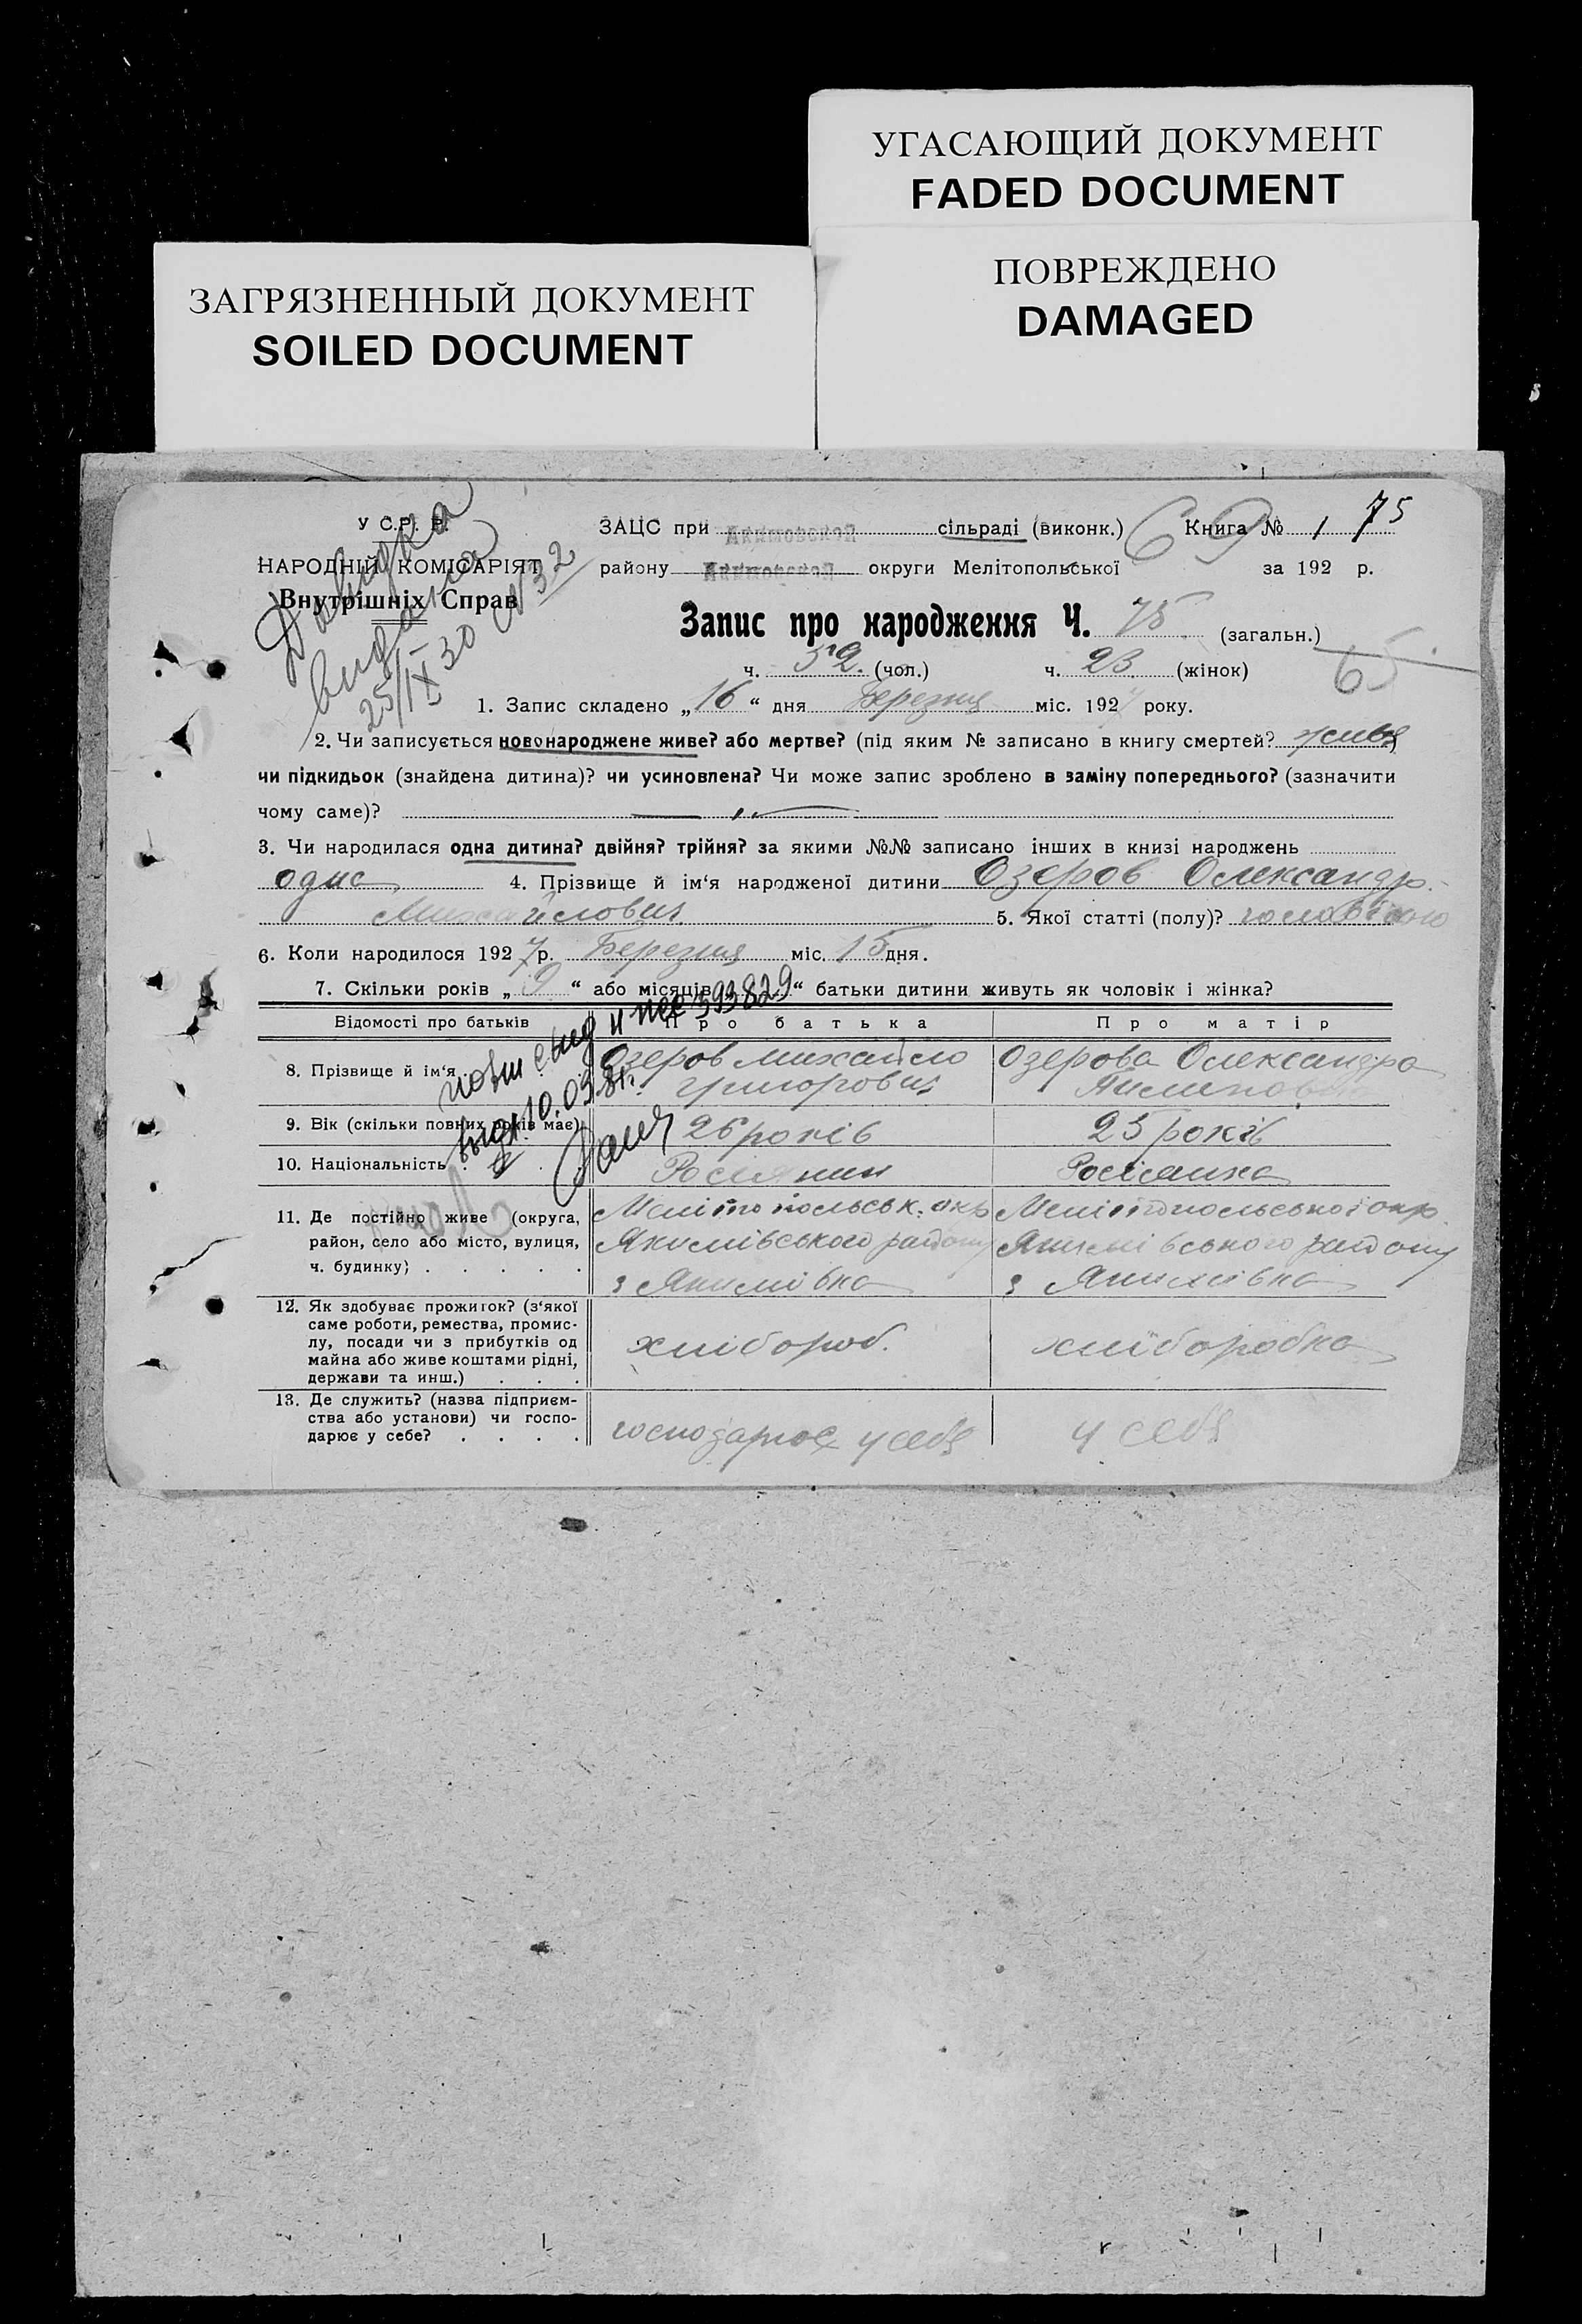 УГАСАЮЩИЙ ДОКУМЕНТ
FADED DOCUMENT
ПОВРЕЖДЕНО
DAMAGED
ЗАГРЯЗНЕННЫЙ ДОКУМЕНТ
SOILED DOCUMENT
У С.Р. Р.
НАРОДНІЙ КОМІСАРІЯТ
Внутрішніх Справ
Довідка
видана
25/IX 30 №32
ЗАЦС при Акимовской сільраді (виконк.) 69 Книга № 1 75
району Акимовской округи Мелітопольської за 192 р.
Запис про народження Ч. 75 (загальн.)
ч. 52 (чол.) ч. 23 (жінок) 65
1. Запис складено „16“ дня Березня міс. 1927 року.
2. Чи записується новонароджене живе? або мертве? (під яким № записано в книгу смертей? живе)
чи підкидьок (знайдена дитина)? чи усиновлена? Чи може запис зроблено в заміну попереднього? (зазначити
чому саме)?
3. Чи народилася одна дитина? двійня? трійня? за якими №№ записано інших в книзі народжень
одна 4. Прізвище й ім'я народженої дитини Озеров Олександр
Михайлович 5. Якої статті (полу)? чоловічого
6. Коли народилося 1927 р. Березня міс. 15 дня.
7. Скільки років „9“ або місяців „ “ батьки дитини живуть як чоловік і жінка?
Відомості про батьків Про батька Про матір
8. Прізвище й ім'я Озеров Михайло Григорович Озерова Олександра
9. Вік (скільки повних років має) 26 років 25 років
10. Національність Росіянин Росіянка
11. Де постійно живе (округа, район, село або місто, вулиця, ч. будинку)
Мелітопольськ. окр Якимівського району з Якимівка
Мелітопольської окр. Якимівського району з Якимівка
12. Як здобуває прожиток? (з'якої саме роботи, ремества, промислу, посади чи з прибутків од майна або живе коштами рідні, держави та инш.)
хлібороб. хліборобка
13. Де служить? (назва підприємства або установи) чи господарює у себе?
господарює у себе у себе
393829
10.09.81г.